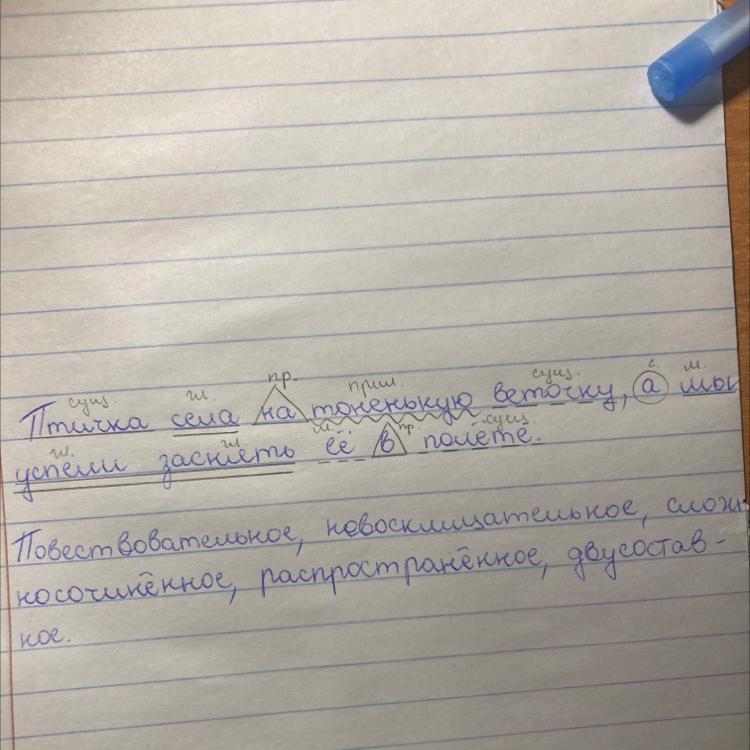 сущ. гл. пр. прил. сущ. с. м.
Птичка села на тоненькую веточку, а мы
гл. гл. м. пр. сущ.
успели заснять её в полёте.
Повествовательное, невосклицательное, слож
носочинённое, распространённое, двусостав-
ное.